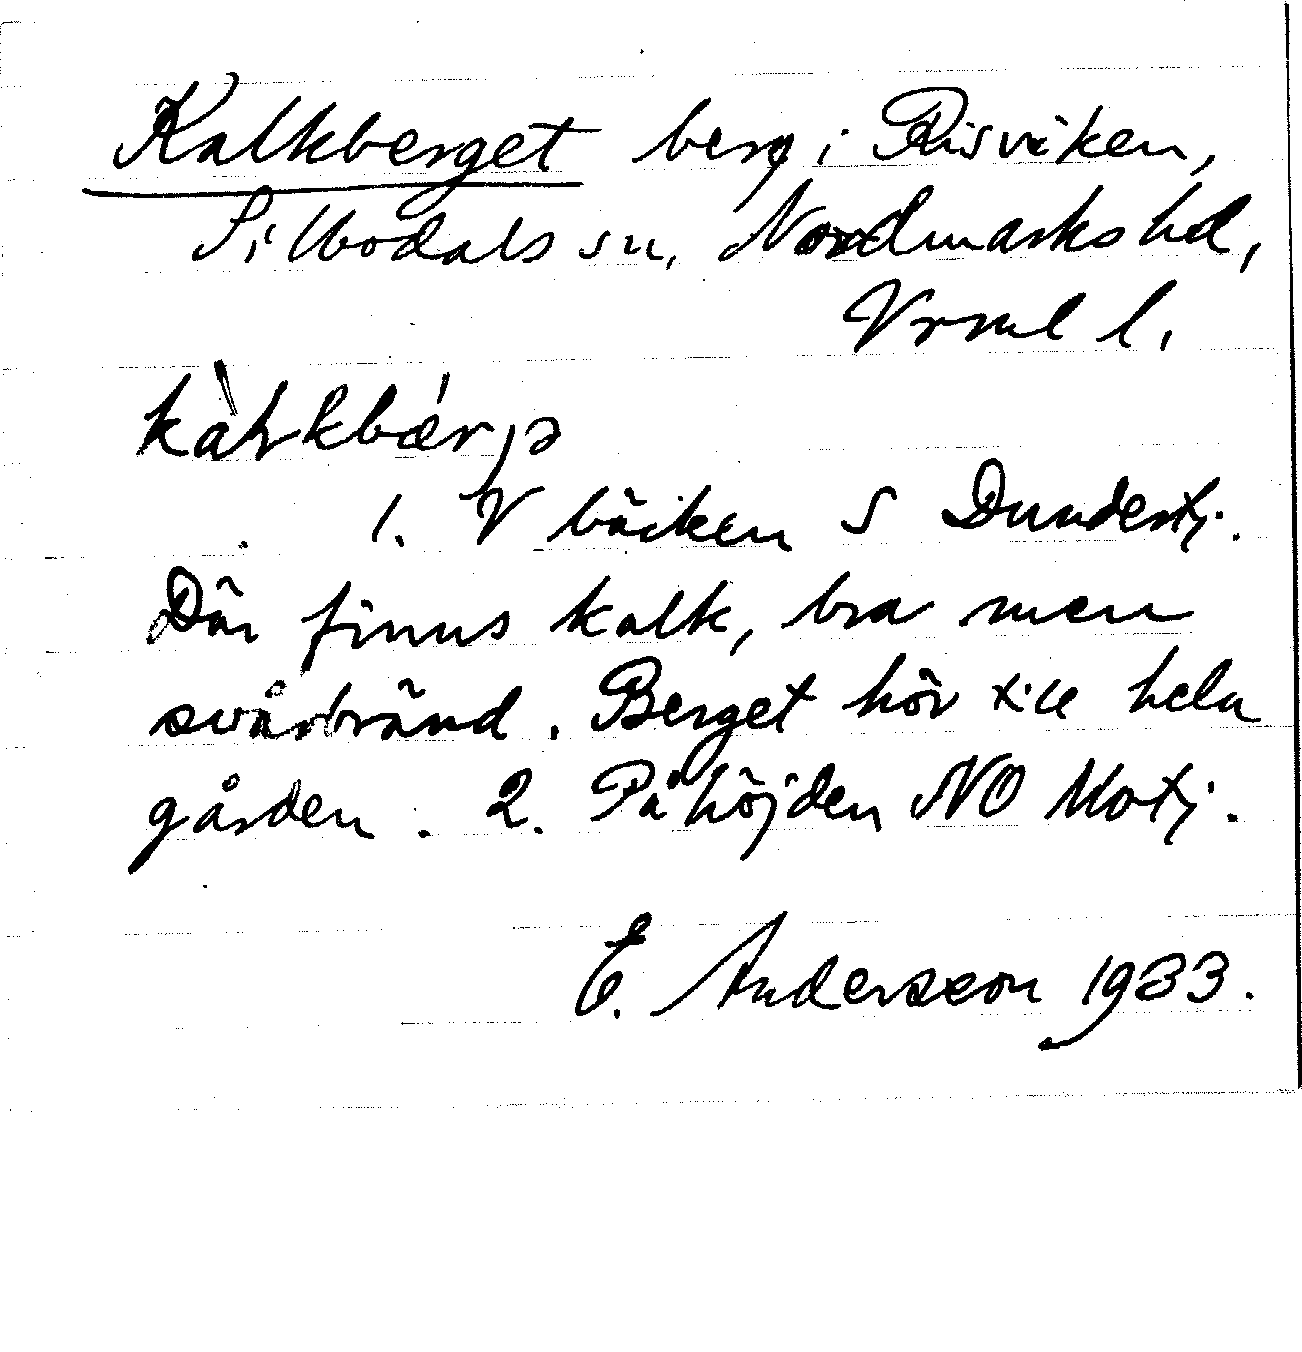 Kalkberget berg i Risviken,
Silbodals sn, Nordmarks hd,
Vrml l.
1. V bäcken S Dundertj.
Där finns kalk, bra men
svårbränd. Berget hör till hela
gården. 2. På höjden NO Motj.
E. Andersson 1933.